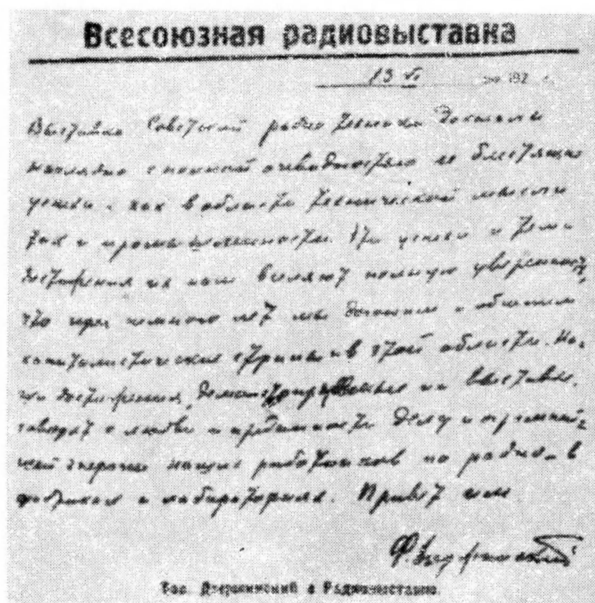 Всесоюзная радиовыставка
13 VI 192 г.
Выставка Советской радио техники доказала
наглядно с полной очевидностью ее блестящие
успехи - как в области технической мысли
так и промышленности. Эти успехи и темп
достижения их нам вселяют полную уверенность,
что через немного лет мы догоним и обгоним
капиталистические страны и в этой области. На-
ши достижения, демонстрированные на выставке,
говорят о любви и преданности делу и огромней-
шей энергии наших работников по радио в
фабриках и лабораториях. Привет им
Ф. Дзержинский
Тов. Дзержинский о Радиовыставке.